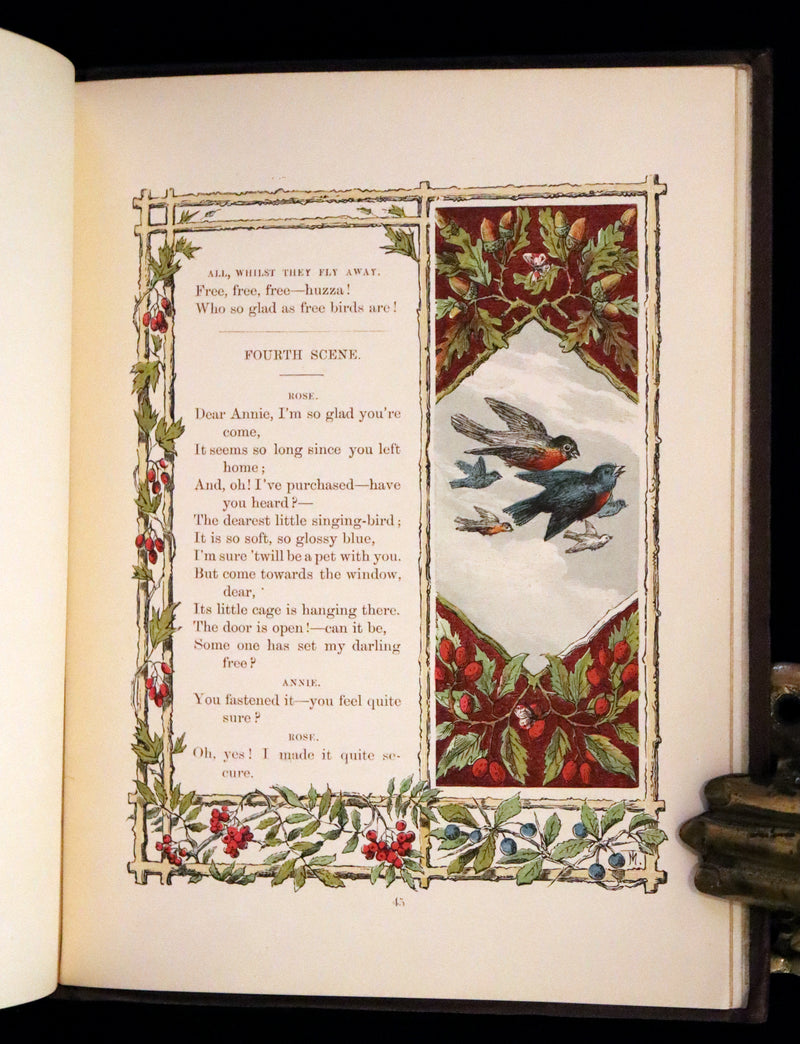 ALL, WHILST THEY FLY AWAY.
Free, free, free—huzza!
Who so glad as free birds are!
FOURTH SCENE.
ROSE.
Dear Annie, I'm so glad you're
come,
It seems so long since you left
home;
And, oh! I've purchased—have
you heard?—
The dearest little singing-bird;
It is so soft, so glossy blue,
I'm sure 'twill be a pet with you.
But come towards the window,
dear,
Its little cage is hanging there.
The door is open!—can it be,
Some one has set my darling
free?
ANNIE.
You fastened it—you feel quite
sure?
ROSE.
Oh, yes! I made it quite se-
cure.
M.
45